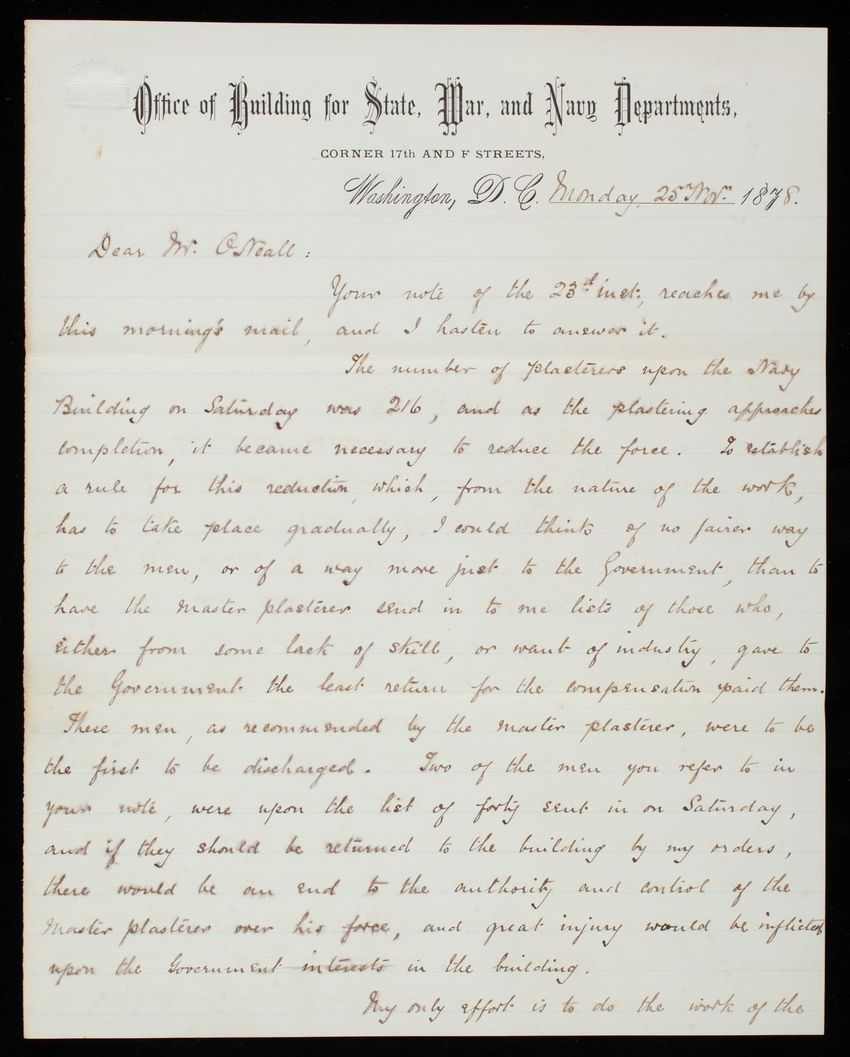 Office of Building for State, War, and Navy Departments,
CORNER 17th AND F STREETS,
Washington, D. C. Monday, 25th Novr. 1878.
Dear Mr. O'Neall:
Your note of the 23d inst., reaches me by
this morning's mail, and I hasten to answer it.
The number of plasterers upon the Navy
Building on Saturday was 216, and as the plastering approaches
completion, it became necessary to reduce the force. To establish
a rule for this reduction, which, from the nature of the work,
has to take place gradually, I could think of no fairer way
to the men, or of a way more just to the Government, than to
have the Master plasterer send in to me lists of those who,
either from some lack of skill, or want of industry, gave to
the Government the least return for the compensation paid them.
These men, as recommended by the master plasterer, were to be
the first to be discharged. Two of the men you refer to in
your note, were upon the list of forty sent in on Saturday,
and if they should be returned to the building by my orders,
there would be an end to the authority and control of the
Master plasterer over his force, and great injury would be inflicted
upon the Government interests in the building.
My only effort is to do the work of the